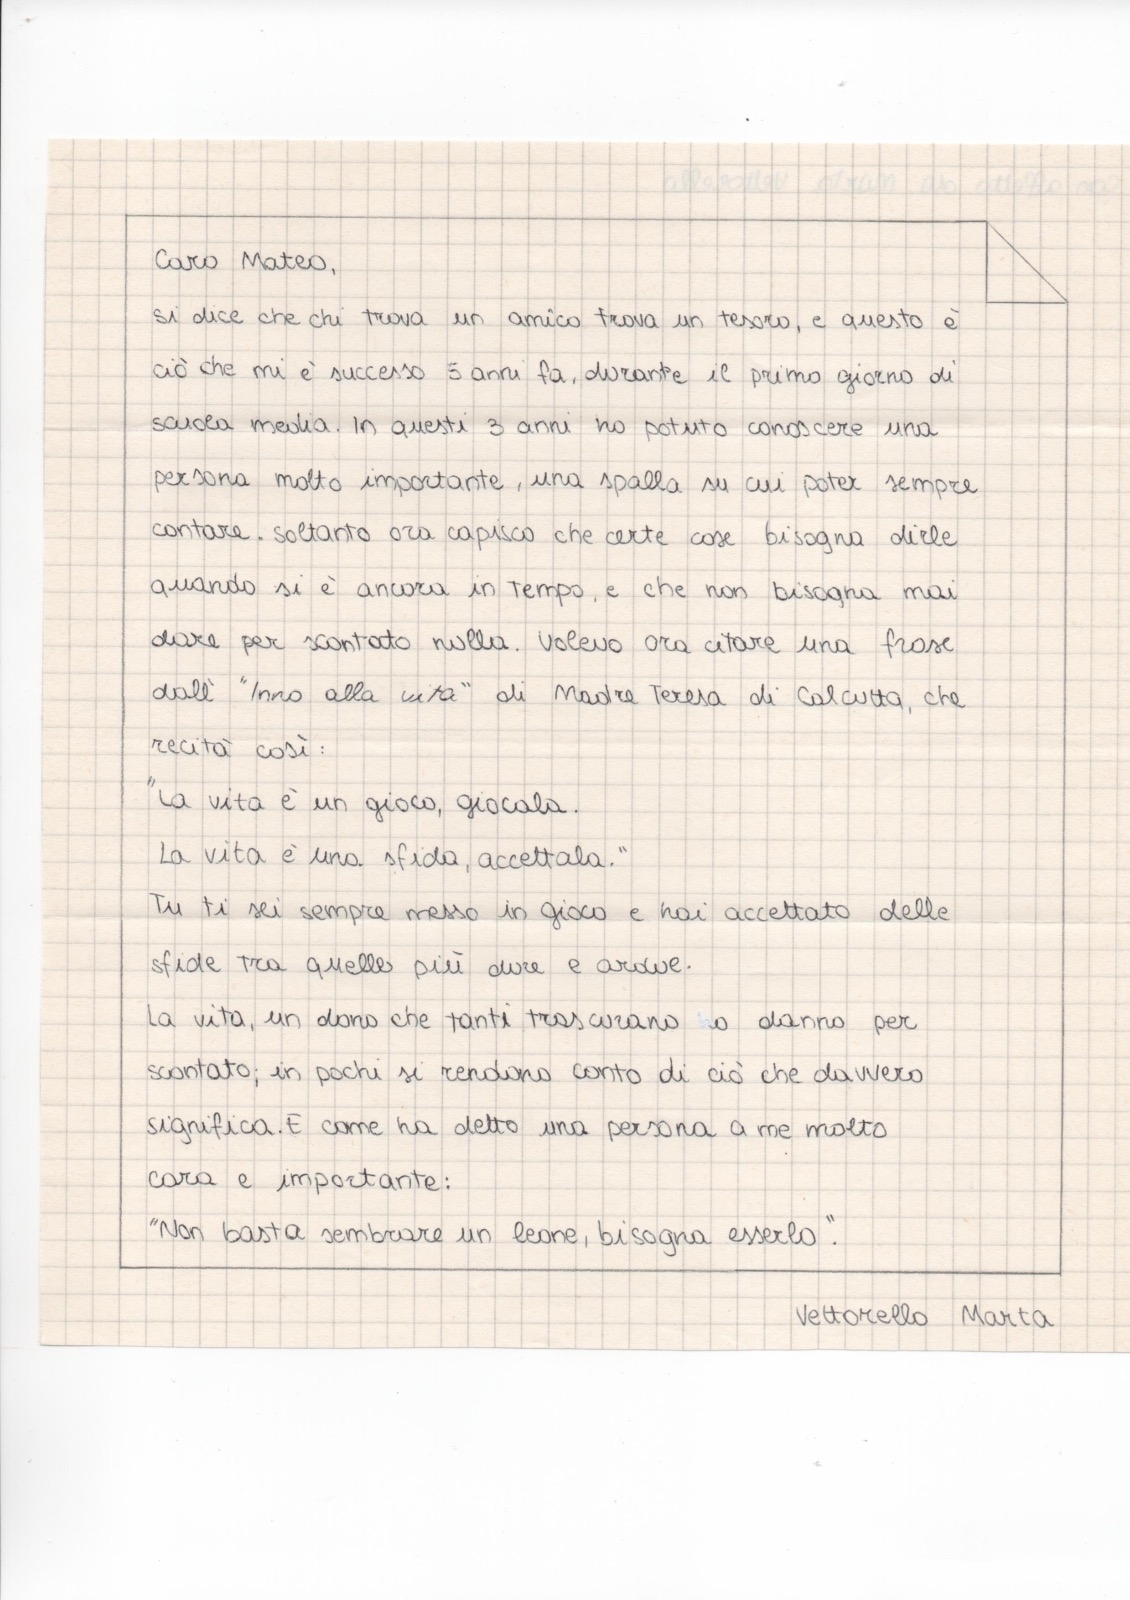 Caro Mateo,
si dice che chi trova un amico trova un tesoro, e questo è
ciò che mi è successo 5 anni fa, durante il primo giorno di
scuola media. In questi 3 anni ho potuto conoscere una
persona molto importante, una spalla su cui poter sempre
contare. Soltanto ora capisco che certe cose bisogna dirle
quando si è ancora in tempo, e che non bisogna mai
dare per scontato nulla. Volevo ora citare una frase
dall' "Inno alla vita" di Madre Teresa di Calcutta, che
recità così:
"La vita è un gioco, giocala.
La vita è una sfida, accettala."
Tu ti sei sempre messo in gioco e hai accettato delle
sfide tra quelle più dure e ardue.
La vita, un dono che tanti trascurano o danno per
scontato; in pochi si rendono conto di ciò che davvero
significa. E come ha detto una persona a me molto
cara e importante:
"Non basta sembrare un leone, bisogna esserlo".
Vettorello Marta